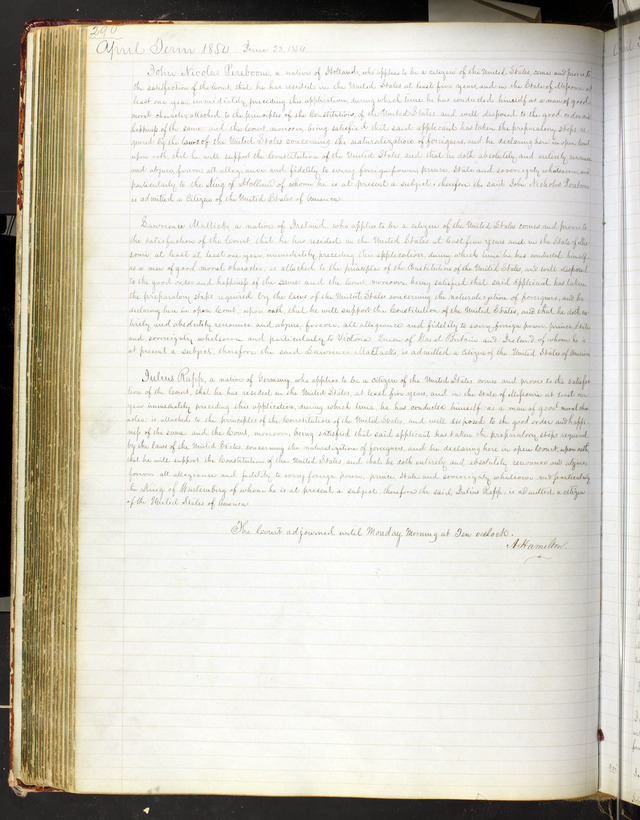 290
April Term 1854 June 23, 1854
John Nicolas Pereboom, a native of Holland, who applies to be a citizen of the United States, comes and proves to
the satisfaction of the Court, that he has resided in the United States at least five years, and in the State of Missouri at
least one year immediately preceding this application, during which time he has conducted himself as a man of good
moral character, attached to the principles of the Constitution of the United States and well disposed to the good order and
happiness of the same and the Court, moreover, being satisfied that said applicant has taken the preparatory steps re
quired by the laws of the United States concerning the naturalization of foreigners, and he declaring here in open Court
upon oath that he will support the Constitution of the United States and that he doth absolutely and entirely renounce
and abjure forever all allegiance and fidelity to every foreign power, prince, State and sovereignty whatsoever, and
particularly to the King of Holland of whom he is at present a subject, therefore the said John Nicholas Pereboom
is admitted a Citizen of the United States of America.
Lawrence Mattock, a native of Ireland, who applies to be a citizen of the United States comes and proves to
the satisfaction of the Court that he has resided in the United States at least five years and in the State of Mis
souri at least at least one year, immediately preceding this application, during which time he has conducted himself
as a man of good moral character, is attached to the principles of the Constitution of the United States, and well disposed
to the good order and happiness of the same and the Court, moreover being satisfied that said applicant has taken
the preparatory steps required by the laws of the United States concerning the naturalization of foreigners, and he
declaring here in open Court, upon oath, that he will support the Constitution of the United States, and that he doth en
tirely and absolutely renounce and abjure forever, all allegiance and fidelity to every foreign power, prince, State
and sovereignty whatsoever and particularly to Victoria Queen of Great Britain and Ireland of whom he is
at present a subject, therefore the said Lawrence Mattock, is admitted a citizen of the United States of America
Julius Rapp, a native of Germany, who applies to be a citizen of the United States comes and proves to the satisfac
tion of the Court, that he has resided in the United States, at least five years, and in the State of Missouri at least one
year immediately preceding this application, during which time, he has conducted himself as a man of good moral cha
racter; is attached to the principles of the Constitution of the United States, and well disposed to the good order and happi
ness of the same and the Court, moreover, being satisfied that said applicant has taken the preparatory steps required
by the laws of the United States, concerning the naturalization of foreigners, and he declaring here in open Court, upon oath
that he will support the Constitution of the United States, and that he doth entirely and absolutely renounce and abjure
forever all allegiance and fidelity to every foreign power, prince, State and sovereignty whatsoever and particularly
the King of Wurtemberg of whom he is at present a subject, therefore the said Julius Rapp, is admitted a citizen
of the United States of America
The Court adjourned until Monday Morning at Ten oclock.
A. Hamilton.